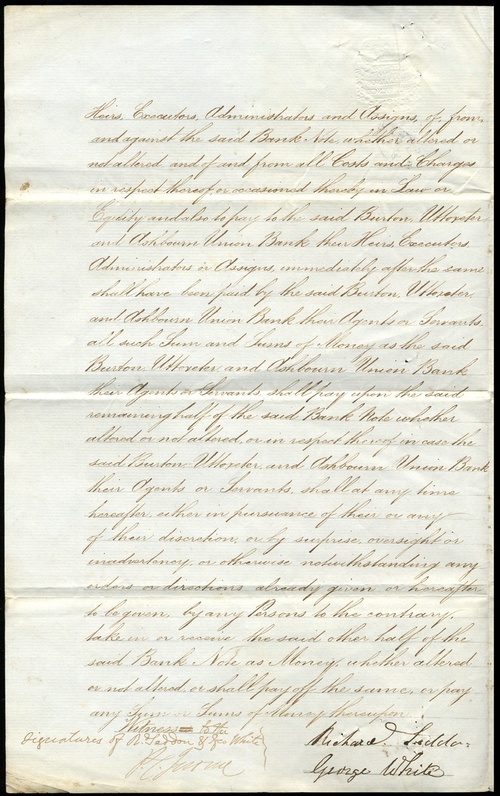 Heirs, Executors, Administrators and Assigns, of, from,
and against the said Bank Note, whether altered or
not altered and of and from all Costs and Charges
in respect thereof, or occasioned thereby in Law or
Equity and also to pay to the said Burton, Uttoxeter
and Ashbourn Union Bank their Heirs, Executors,
Administrators or Assigns, immediately after the same
shall have been paid by the said Burton, Uttoxeter,
and Ashbourn Union Bank their Agents or Servants,
all such Sum and Sums of Money as the said
Burton, Uttoxeter, and Ashbourn Union Bank
their Agents or Servants shall pay upon the said
remaining half of the said Bank Note whether
altered or not altered, or in respect thereof in case the
said Burton Uttoxeter, and Ashbourn Union Bank
their Agents or Servants, shall at any time
hereafter, either in pursuance of their or any
of their discretion, or by surprise, oversight or
inadvertency, or otherwise notwithstanding any
orders or directions already given or hereafter
to be given, by any Persons to the contrary,
take in or receive the said other half of the
said Bank Note as Money, whether altered
or not altered, or shall pay off the same, or pay
any Sum or Sums of Money thereupon.
Witness to the
Signatures of R. Seddon & Geo White
Richard Seddon
George White